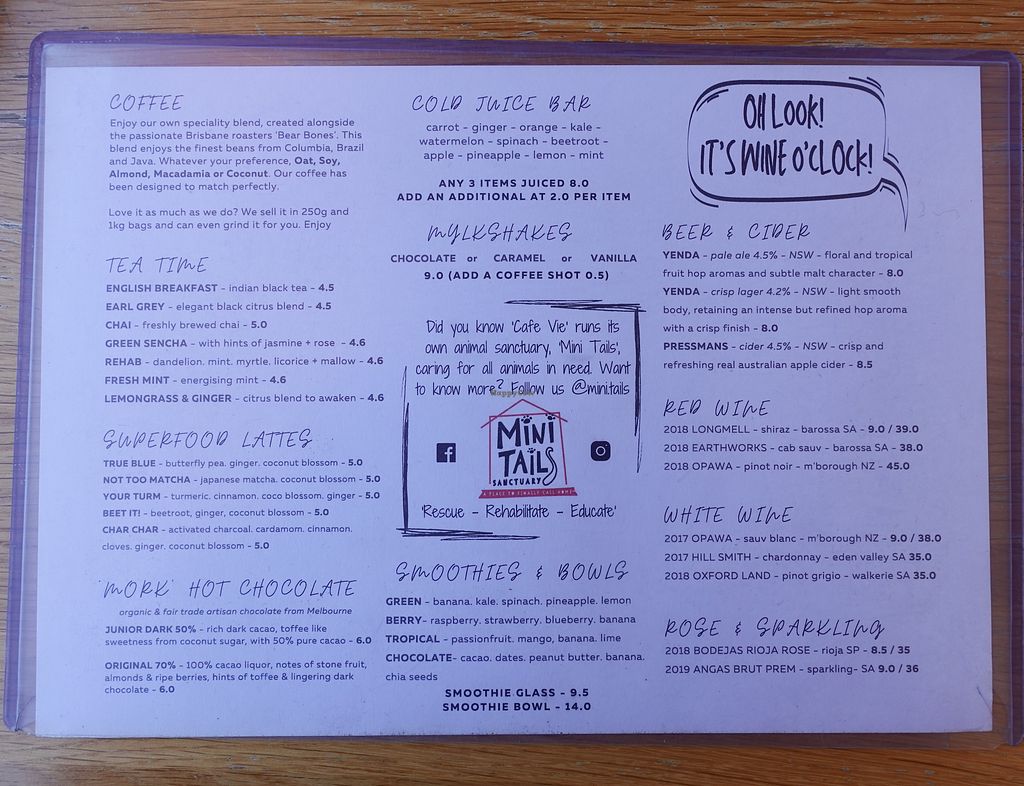 COFFEE
Enjoy our own speciality blend, created alongside
the passionate Brisbane roasters 'Bear Bones'. This
blend enjoys the finest beans from Columbia, Brazil
and Java. Whatever your preference, Oat, Soy,
Almond, Macadamia or Coconut. Our coffee has
been designed to match perfectly.
Love it as much as we do? We sell it in 250g and
1kg bags and can even grind it for you. Enjoy
TEA TIME
ENGLISH BREAKFAST - indian black tea - 4.5
EARL GREY - elegant black citrus blend - 4.5
CHAI - freshly brewed chai - 5.0
GREEN SENCHA - with hints of jasmine + rose - 4.6
REHAB - dandelion. mint. myrtle. licorice + mallow - 4.6
FRESH MINT - energising mint - 4.6
LEMONGRASS & GINGER - citrus blend to awaken - 4.6
SUPERFOOD LATTES
TRUE BLUE - butterfly pea. ginger. coconut blossom - 5.0
NOT TOO MATCHA - japanese matcha. coconut blossom - 5.0
YOUR TURM - turmeric. cinnamon. coco blossom. ginger - 5.0
BEET IT! - beetroot, ginger, coconut blossom - 5.0
CHAR CHAR - activated charcoal. cardamom. cinnamon.
cloves. ginger. coconut blossom - 5.0
'MORK' HOT CHOCOLATE
organic & fair trade artisan chocolate from Melbourne
JUNIOR DARK 50% - rich dark cacao, toffee like
sweetness from coconut sugar, with 50% pure cacao - 6.0
ORIGINAL 70% - 100% cacao liquor, notes of stone fruit,
almonds & ripe berries, hints of toffee & lingering dark
chocolate - 6.0
COLD JUICE BAR
carrot - ginger - orange - kale -
watermelon - spinach - beetroot -
apple - pineapple - lemon - mint
ANY 3 ITEMS JUICED 8.0
ADD AN ADDITIONAL AT 2.0 PER ITEM
MYLKSHAKES
CHOCOLATE or CARAMEL or VANILLA
9.0 (ADD A COFFEE SHOT 0.5)
Did you know 'Cafe Vie' runs its
own animal sanctuary, 'Mini Tails',
caring for all animals in need. Want
to know more? Follow us @minitails
HappyCow
MiNi
TAILS
SANCTUARY
A PLACE TO FINALLY CALL HOME
'Rescue - Rehabilitate - Educate'
SMOOTHIES & BOWLS
GREEN - banana. kale. spinach. pineapple. lemon
BERRY- raspberry. strawberry. blueberry. banana
TROPICAL - passionfruit. mango, banana. lime
CHOCOLATE- cacao. dates. peanut butter. banana.
chia seeds
SMOOTHIE GLASS - 9.5
SMOOTHIE BOWL - 14.0
OH LOOK!
IT'S WINE O'CLOCK!
BEER & CIDER
YENDA - pale ale 4.5% - NSW - floral and tropical
fruit hop aromas and subtle malt character - 8.0
YENDA - crisp lager 4.2% - NSW - light smooth
body, retaining an intense but refined hop aroma
with a crisp finish - 8.0
PRESSMANS - cider 4.5% - NSW - crisp and
refreshing real australian apple cider - 8.5
RED WINE
2018 LONGMELL - shiraz - barossa SA - 9.0 / 39.0
2018 EARTHWORKS - cab sauv - barossa SA - 38.0
2018 OPAWA - pinot noir - m'borough NZ - 45.0
WHITE WINE
2017 OPAWA - sauv blanc - m'borough NZ - 9.0 / 38.0
2017 HILL SMITH - chardonnay - eden valley SA 35.0
2018 OXFORD LAND - pinot grigio - walkerie SA 35.0
ROSE & SPARKLING
2018 BODEJAS RIOJA ROSE - rioja SP - 8.5 / 35
2019 ANGAS BRUT PREM - sparkling- SA 9.0 / 36